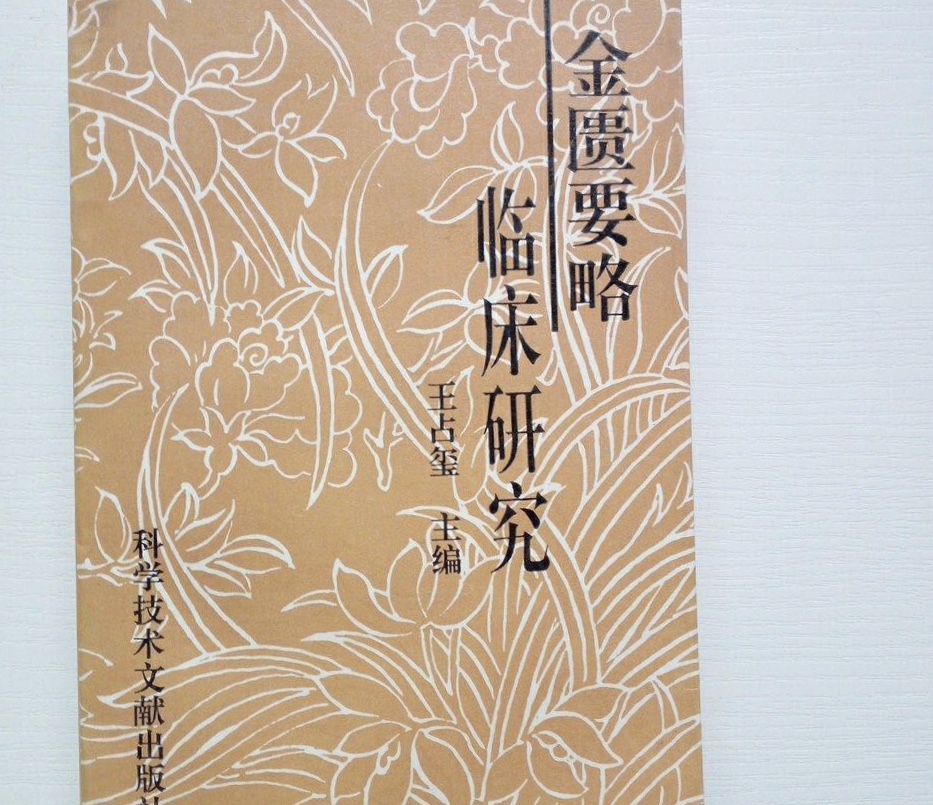 金匮要略
临床研究
王占玺 主编
科学技术文献出版社